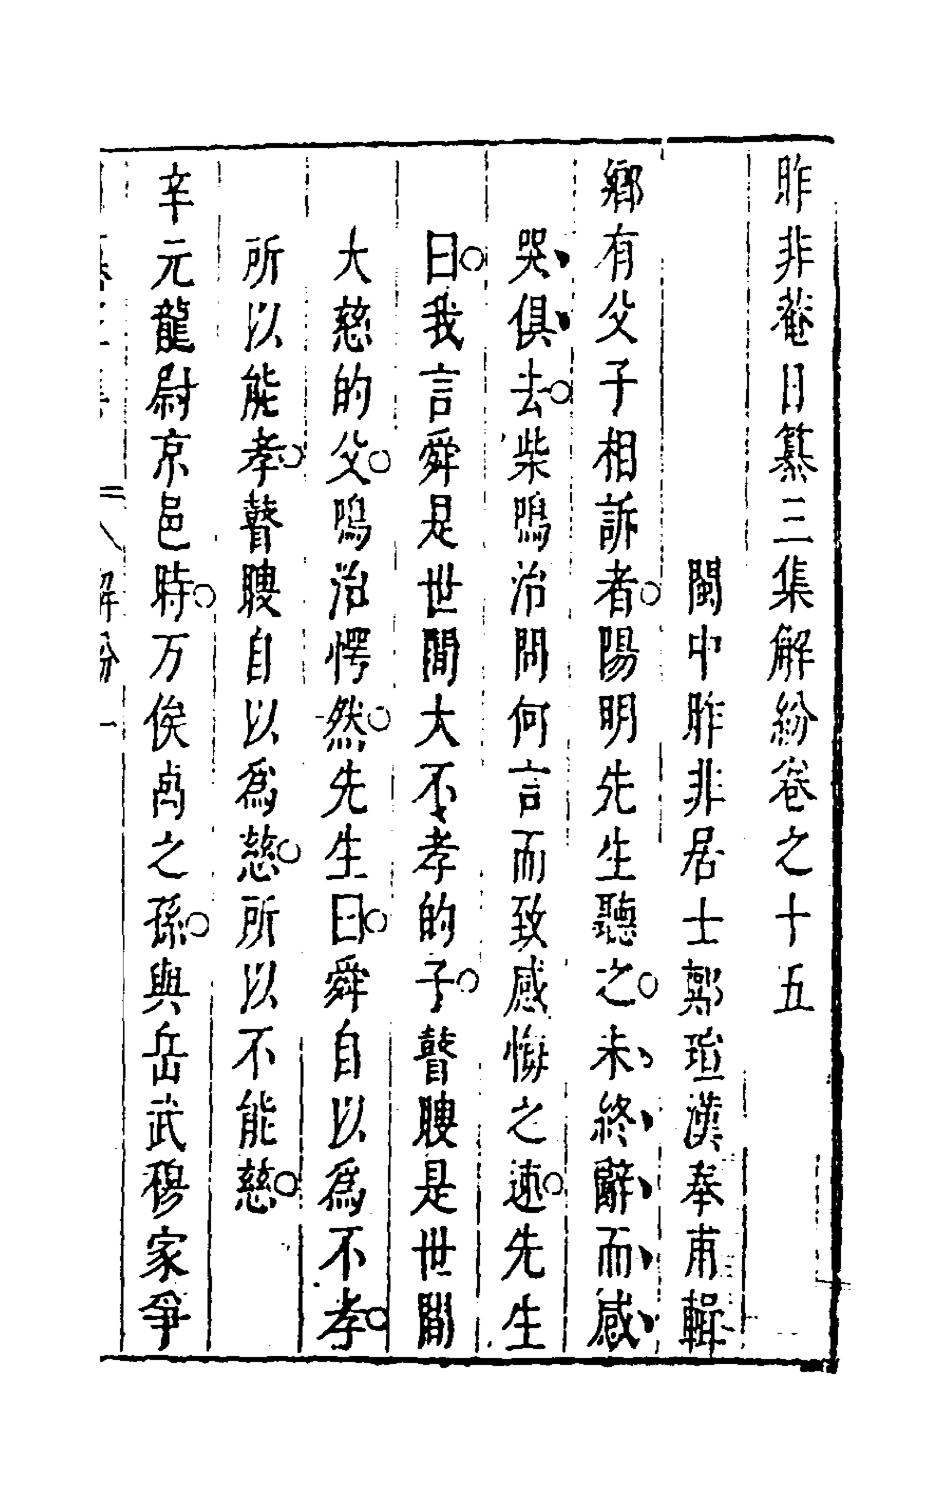 昨非菴日纂三集解紛卷之十五
閩中昨非居士鄭瑄漢奉甫輯
鄉有父子相訴者○陽明先生聽之○未終辭而感
哭俱去○柴鳴治問何言而致感悔之速○先生
曰○我言舜是世間大不孝的子○瞽瞍是世間
大慈的父○鳴治愕然○先生曰○舜自以爲不孝○
所以能孝○瞽瞍自以爲慈○所以不能慈○
辛元龍尉京邑時○万俟卨之孫○與岳武穆家爭
解紛 一